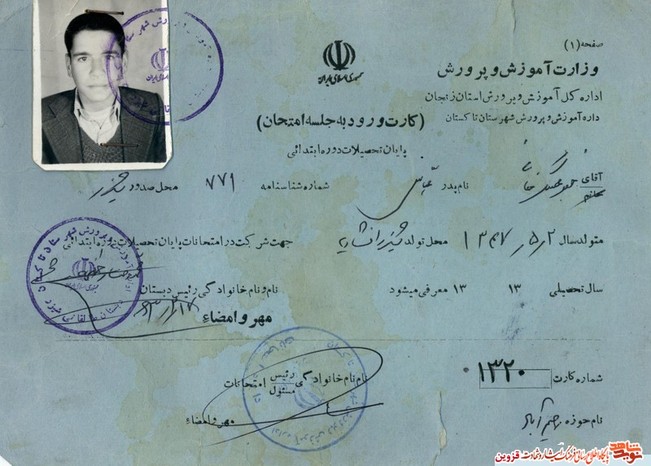 صفحه (۱)
وزارت آموزش و پرورش
جمهوری اسلامی ایران
اداره کل آموزش و پرورش استان زنجان
اداره آموزش و پرورش شهرستان تاکستان
(کارت ورود به جلسه امتحان)
پایان تحصیلات دوره ابتدائی
آقای خانم نام پدر عباس شماره شناسنامه ۷۷۱ محل صدور
متولد سال ۱۳۴۷/۵/۲ محل تولد جهت شرکت در امتحانات پایان تحصیلات دوره ابتدائی
سال تحصیلی ۱۳ ۱۳ معرفی میشود نام و نام خانوادگی رئیس دبستان
مهر و امضاء
شماره کارت ۱۳۲۰ نام نام خانوادگی رئیس مسئول امتحانات
نام حوزه رحیم آباد مهر و امضاء
نوید شاهد پایگاه اطلاع رسانی فرهنگ ایثار و شهادت قزوین